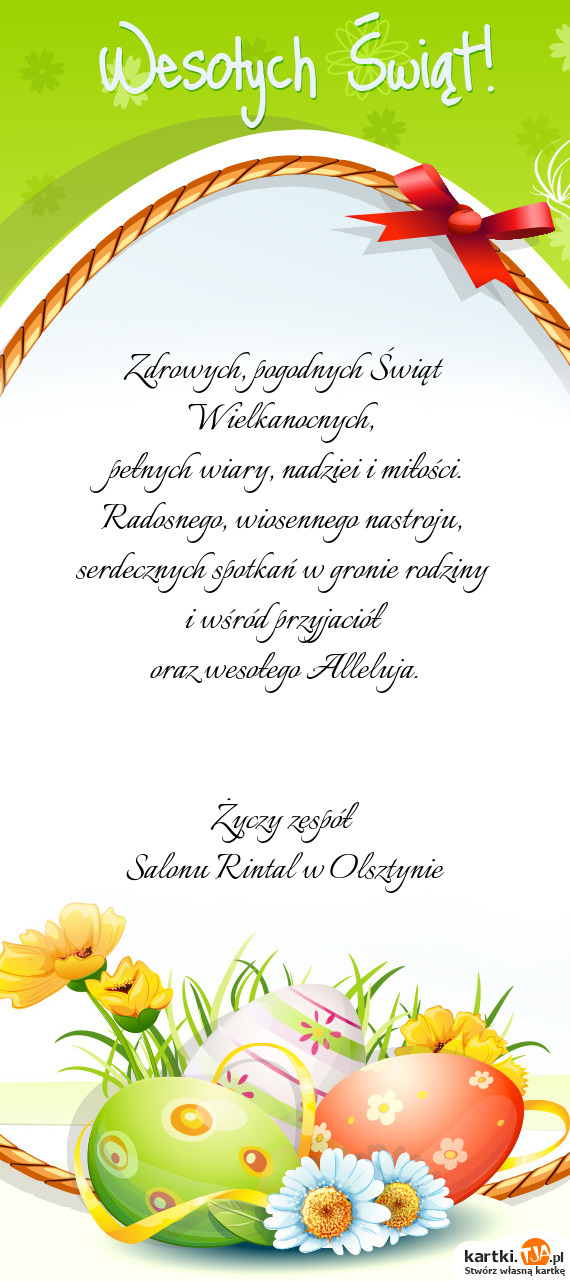 Wesołych Świąt!
Zdrowych, pogodnych Świąt
Wielkanocnych,
pełnych wiary, nadziei i miłości.
Radosnego, wiosennego nastroju,
serdecznych spotkań w gronie rodziny
i wśród przyjaciół
oraz wesołego Alleluja.
Życzy zespół
Salonu Rintal w Olsztynie
kartki.TJA.pl
Stwórz własną kartkę